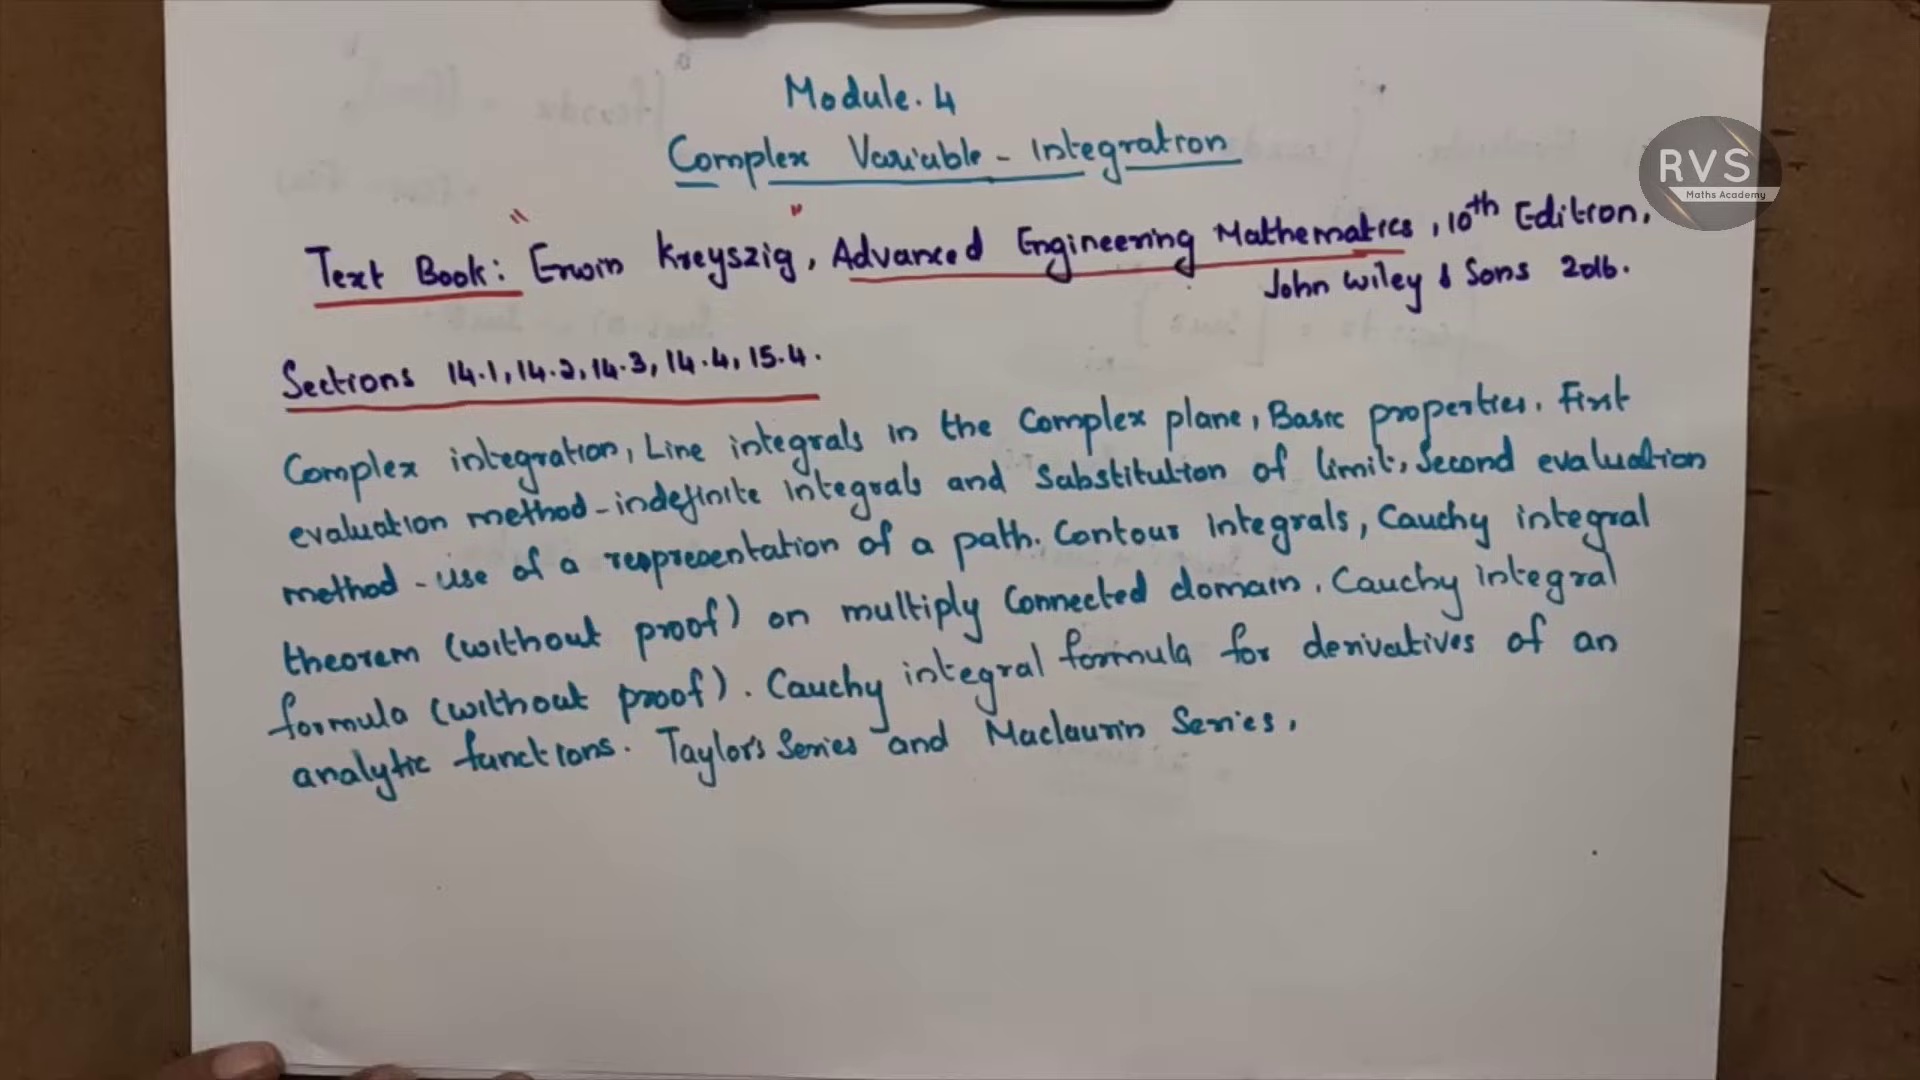 Module. 4
Complex Variable - Integration
RVS
Maths Academy
Text Book: "Erwin Kreyszig", Advanced Engineering Mathematics, 10th Edition,
John Wiley & Sons 2016.
Sections 14.1, 14.2, 14.3, 14.4, 15.4.
Complex integration, Line integrals in the Complex plane, Basic properties. First
evaluation method - indefinite integrals and substitution of limit, Second evaluation
method - use of a reopresentation of a path. Contour integrals, Cauchy integral
theorem (without proof) on multiply Connected domain. Cauchy integral
formula (without proof). Cauchy integral formula for derivatives of an
analytic functions. Taylor's Series and Maclaurin Series.